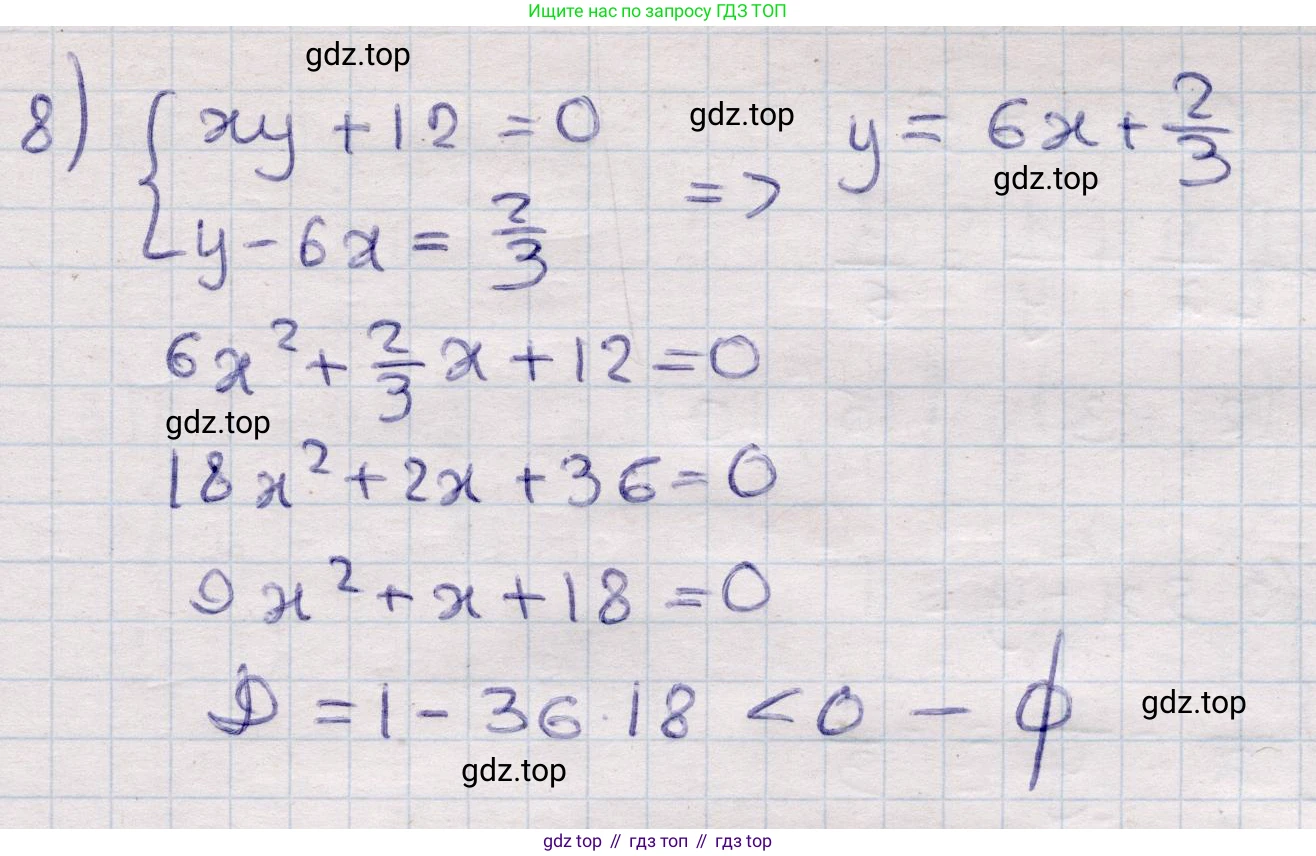 Ищите нас по запросу ГДЗ ТОП
gdz.top
8) { xy + 12 = 0
y - 6x = 2/3
gdz.top
=> y = 6x + 2/3
gdz.top
6x² + 2/3 x + 12 = 0
gdz.top
18x² + 2x + 36 = 0
9x² + x + 18 = 0
D = 1 - 36·18 < 0 - ϕ
gdz.top
gdz.top
gdz top // гдз топ // gdz top